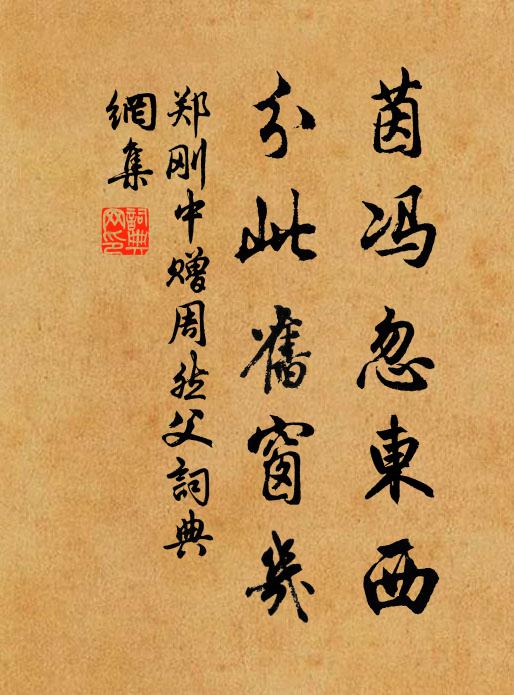 茵冯忽東西
分此舊窗幾
郑刚中赠周然父詞典
網集
詞典網印